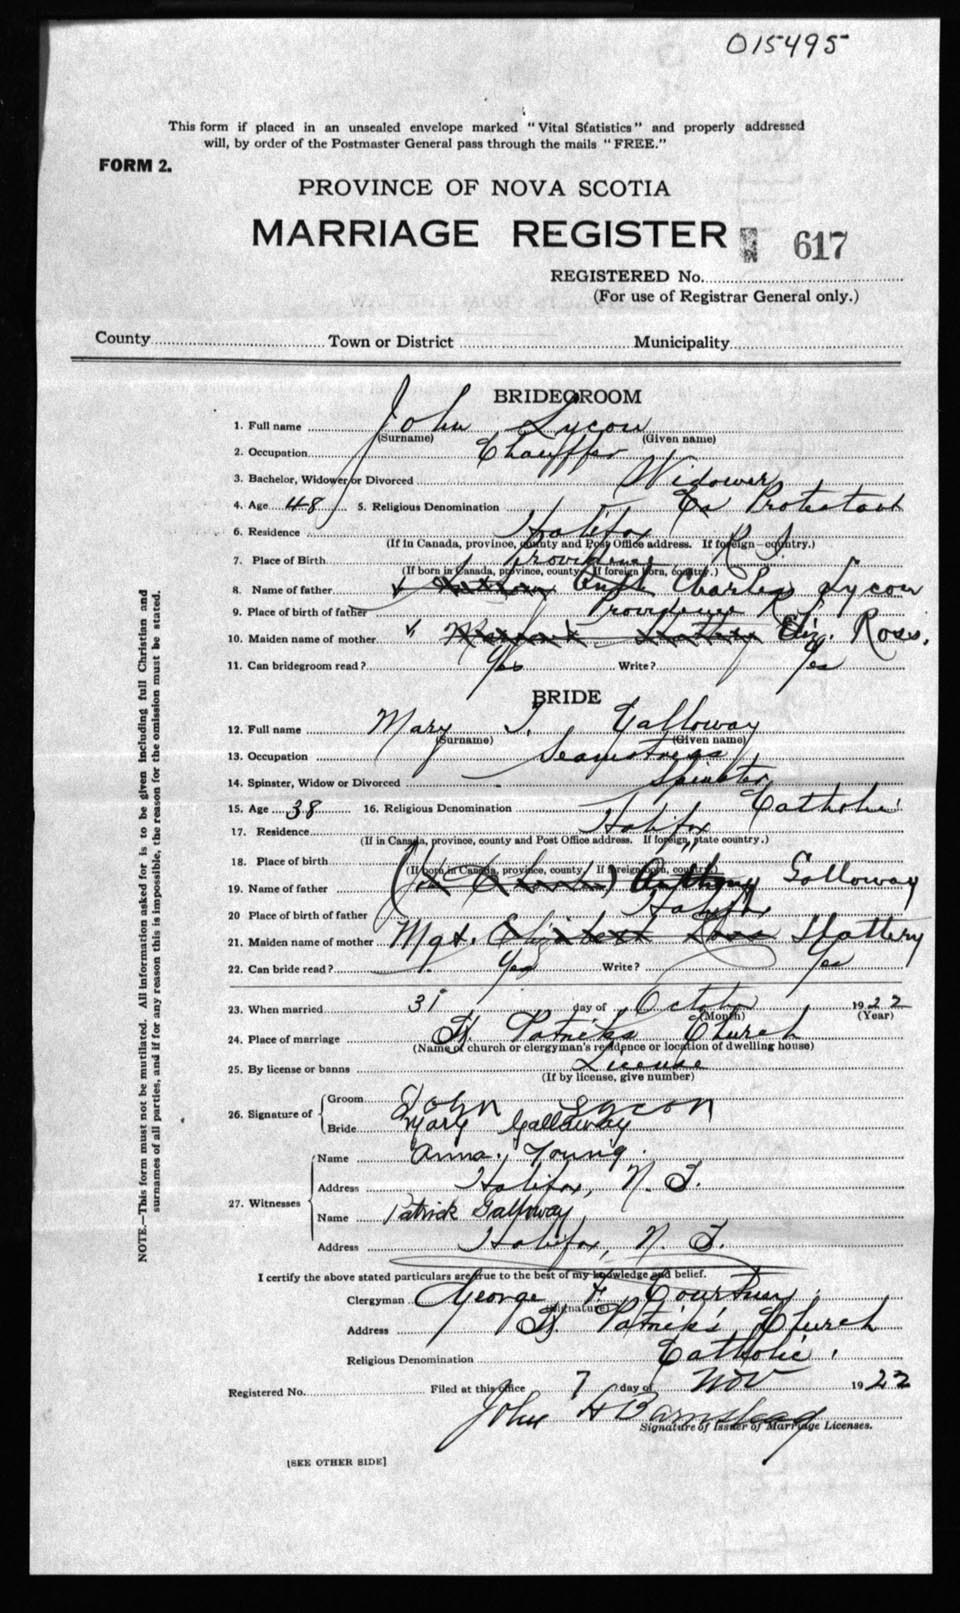 015495
This form if placed in an unsealed envelope marked "Vital Statistics" and properly addressed
will, by order of the Postmaster General pass through the mails "FREE."
FORM 2.
PROVINCE OF NOVA SCOTIA
MARRIAGE REGISTER 617
REGISTERED No.
(For use of Registrar General only.)
County Town or District Municipality
BRIDEGROOM
1. Full name John Lycon
(Surname) (Given name)
2. Occupation Chauffer
3. Bachelor, Widower or Divorced Widower
4. Age 48 5. Religious Denomination Protestant
6. Residence Halifax
(If in Canada, province, county and Post Office address. If foreign—country.)
7. Place of Birth Providence R I.
(If born in Canada, province, county. If foreign born, country.)
8. Name of father Charles Lycon
9. Place of birth of father Providence R I
10. Maiden name of mother Eliz. Ross.
11. Can bridegroom read? Yes Write? Yes
BRIDE
12. Full name Mary T. Galloway
(Surname) (Given name)
13. Occupation Seamstress
14. Spinster, Widow or Divorced Spinster
15. Age 38 16. Religious Denomination Catholic
17. Residence Halifax
(If in Canada, province, county and Post Office address. If foreign, state country.)
18. Place of birth "
(If born in Canada, province, county. If foreign born, country.)
19. Name of father Anthony Galloway
20 Place of birth of father Halifax
21. Maiden name of mother Mgt. Elizabeth Ross Slattery
22. Can bride read? Yes Write? Yes
23. When married 31 day of October 1922
(Month) (Year)
24. Place of marriage St. Patrick's Church
(Name of church or clergyman's residence or location of dwelling house)
25. By license or banns License
(If by license, give number)
26. Signature of Groom John Lycon
Bride Mary Galloway
27. Witnesses Name Anna Young
Address Halifax, N. S.
Name Patrick Galloway
Address Halifax, N. S.
I certify the above stated particulars are true to the best of my knowledge and belief.
Clergyman George F. Courtney
(Signature)
Address St Patrick's Church
Religious Denomination Catholic
Registered No. Filed at this office 7 day of Nov 1922
John H Barnstead
Signature of Issuer of Marriage Licenses.
[SEE OTHER SIDE]
NOTE.—This form must not be mutilated. All information asked for is to be given including full Christian and
surnames of all parties, and if for any reason this is impossible, the reason for the omission must be stated.